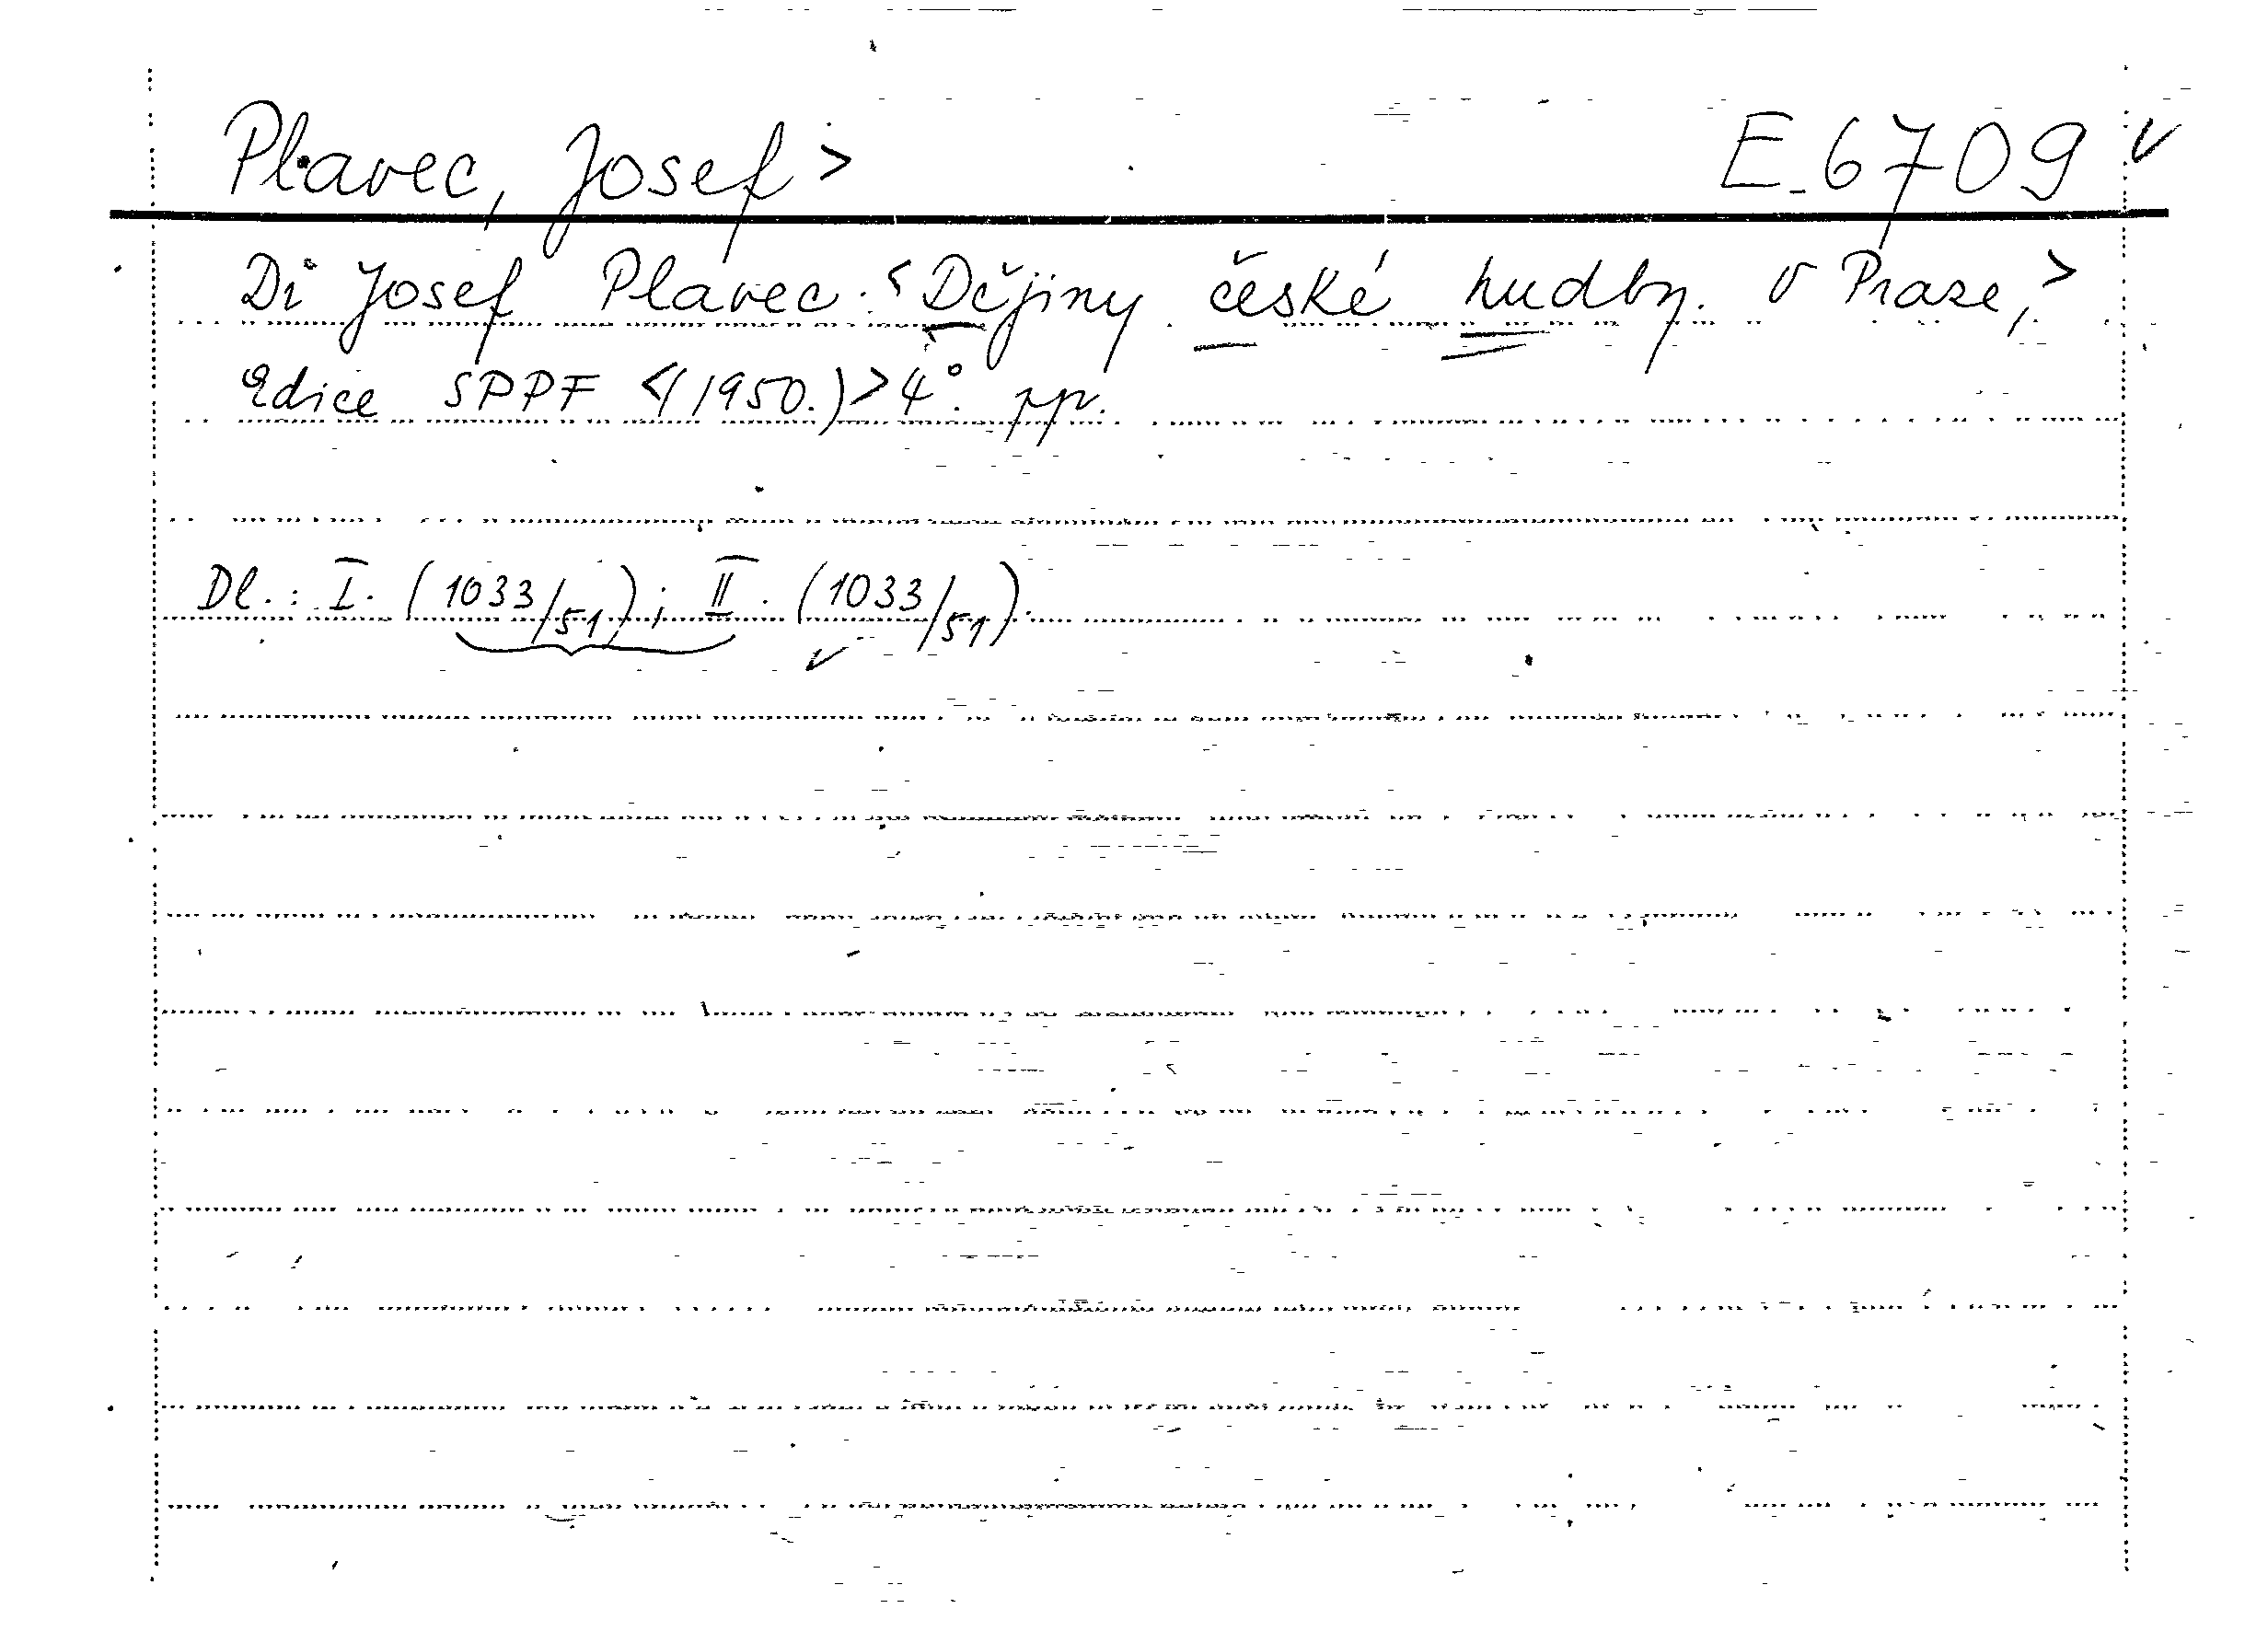 Plavec, Josef> E_6709 ✓
Dr Josef Plavec. <Dějiny české hudby. V Praze,>
Edice SPPF <(1950.)> 4°. pp.
Dl.: I. (1033/51); II. (1033/51).